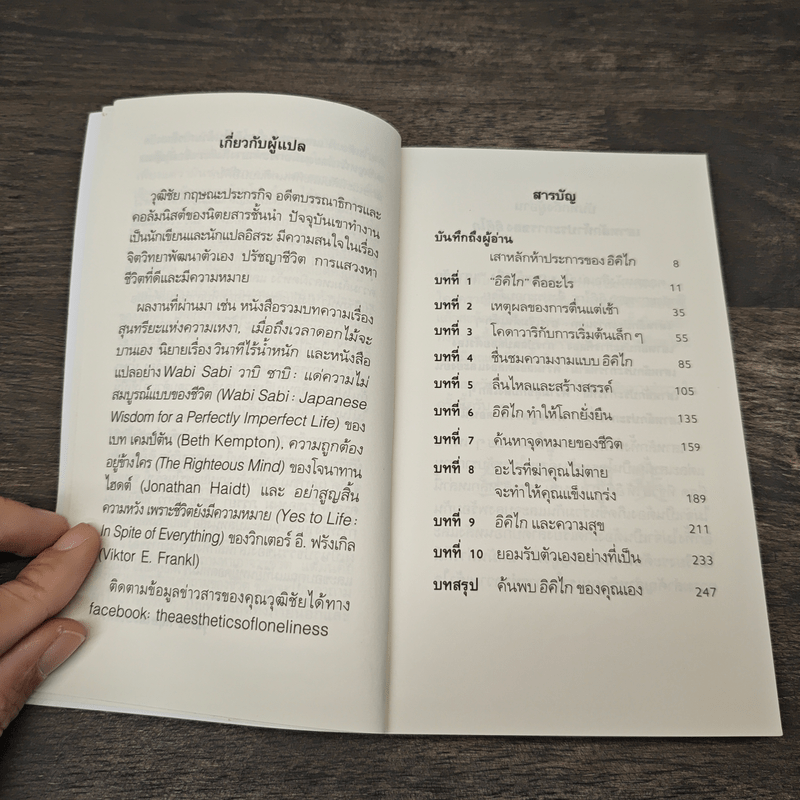 เกี่ยวกับผู้แปล
วุฒิชัย กฤษณะประกรกิจ อดีตบรรณาธิการและ
คอลัมนิสต์ของนิตยสารชั้นนำ ปัจจุบันเขาทำงาน
เป็นนักเขียนและนักแปลอิสระ มีความสนใจในเรื่อง
จิตวิทยาพัฒนาตัวเอง ปรัชญาชีวิต การแสวงหา
ชีวิตที่ดีและมีความหมาย
ผลงานที่ผ่านมา เช่น หนังสือรวมบทความเรื่อง
สุนทรียะแห่งความเหงา, เมื่อถึงเวลาดอกไม้จะ
บานเอง นิยายเรื่อง วินาทีไร้น้ำหนัก และหนังสือ
แปลอย่าง Wabi Sabi วาบิ ซาบิ : แด่ความไม่
สมบูรณ์แบบของชีวิต (Wabi Sabi : Japanese
Wisdom for a Perfectly Imperfect Life) ของ
เบท เคมป์ตัน (Beth Kempton), ความถูกต้อง
อยู่ข้างใคร (The Righteous Mind) ของโจนาทาน
ไฮดต์ (Jonathan Haidt) และ อย่าสูญสิ้น
ความหวัง เพราะชีวิตยังมีความหมาย (Yes to Life :
In Spite of Everything) ของวิกเตอร์ อี. ฟรังเกิล
(Viktor E. Frankl)
ติดตามข้อมูลข่าวสารของคุณวุฒิชัยได้ทาง
facebook: theaestheticsofloneliness
สารบัญ
บันทึกถึงผู้อ่าน
เสาหลักห้าประการของ อิคิไก 8
บทที่ 1 “อิคิไก” คืออะไร 11
บทที่ 2 เหตุผลของการตื่นแต่เช้า 35
บทที่ 3 โคดาวาริกับการเริ่มต้นเล็ก ๆ 55
บทที่ 4 ชื่นชมความงามแบบ อิคิไก 85
บทที่ 5 ลื่นไหลและสร้างสรรค์ 105
บทที่ 6 อิคิไก ทำให้โลกยั่งยืน 135
บทที่ 7 ค้นหาจุดหมายของชีวิต 159
บทที่ 8 อะไรที่ฆ่าคุณไม่ตาย
จะทำให้คุณแข็งแกร่ง 189
บทที่ 9 อิคิไก และความสุข 211
บทที่ 10 ยอมรับตัวเองอย่างที่เป็น 233
บทสรุป ค้นพบ อิคิไก ของคุณเอง 247